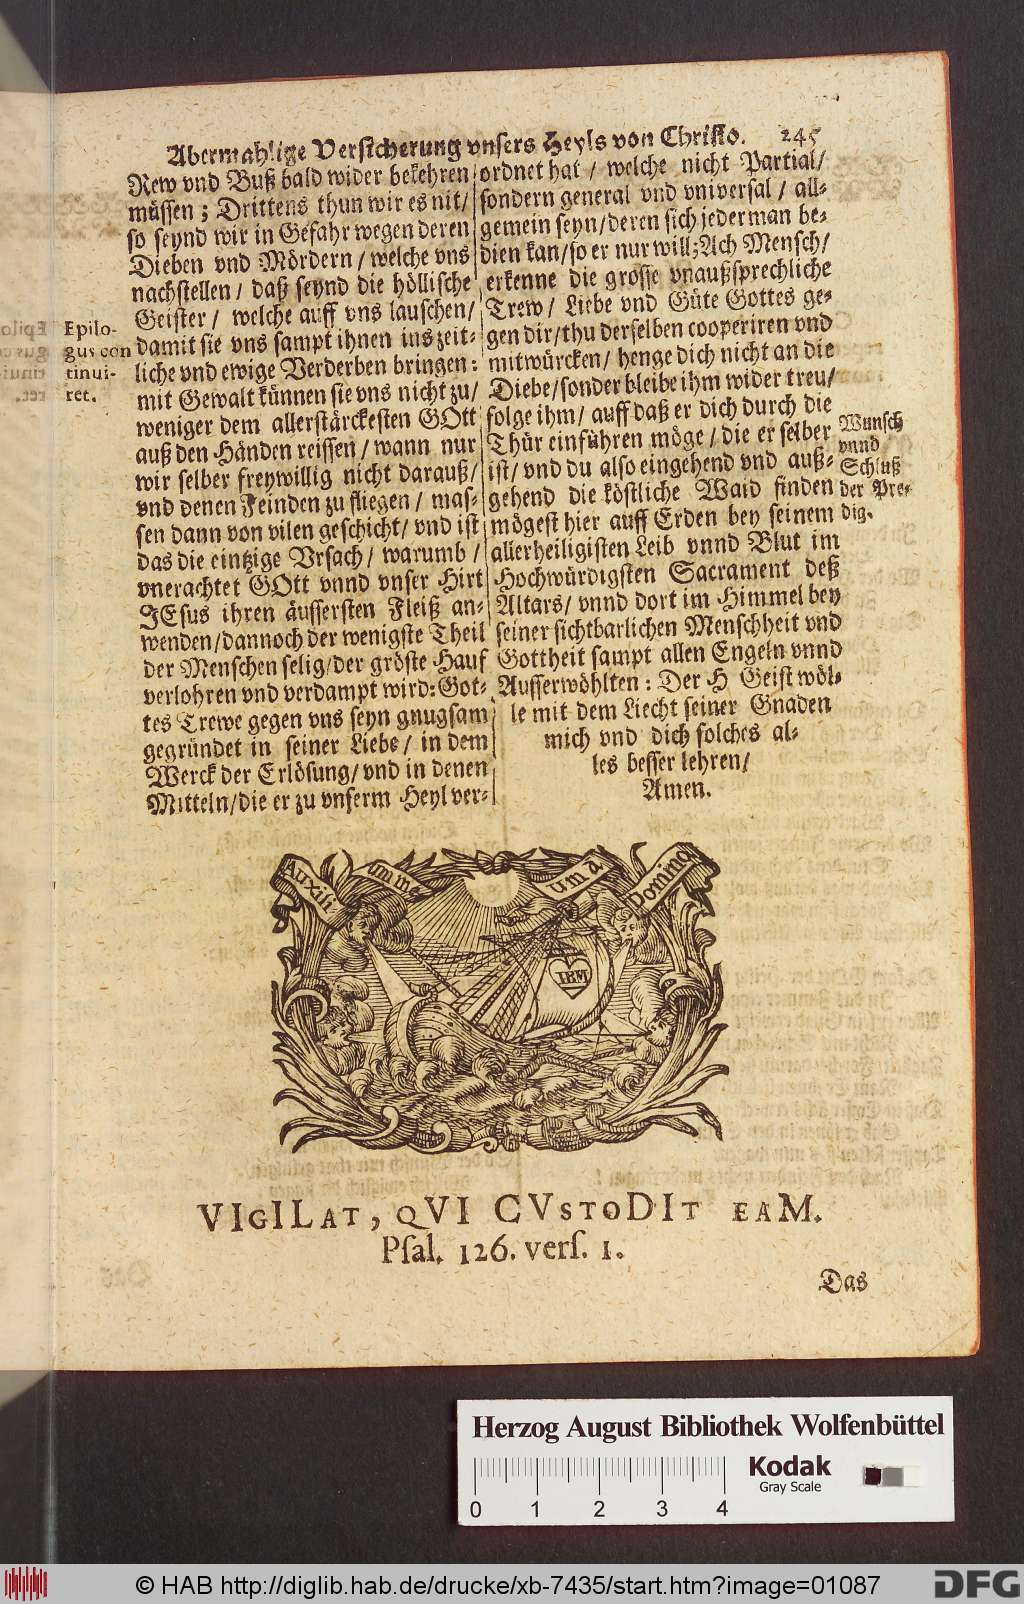 Abermahlige Versicherung vnsers Heyls von Christo. 245
Rew vnd Buß bald wider bekehren
müssen; Drittens thun wir es nit/
so seynd wir in Gefahr wegen deren
Dieben vnd Mördern/ welche vns
nachstellen/ daß seynd die höllische
Geister/ welche auff vns lauschen/
damit sie vns sampt ihnen ins zeit-
liche vnd ewige Verderben bringen:
mit Gewalt künnen sie vns nicht zu/
weniger dem allerstärckesten GOtt
auß den Händen reissen/ wann nur
wir selber freywillig nicht darauß/
vnd denen Feinden zu fliegen/ mas-
sen dann von vilen geschicht/ vnd ist
das die eintzige Vrsach/ warumb/
vnerachtet GOtt vnnd vnser Hirt
JEsus ihren äussersten Fleiß an-
wenden/ dannoch der wenigste Theil
der Menschen selig/ der gröste Hauf
verlohren vnd verdampt wird: Got-
tes Trewe gegen vns seyn gnugsam
gegründet in seiner Liebe/ in dem
Werck der Erlösung/ vnd in denen
Mitteln/ die er zu vnserm Heyl ver-
Epilo-
gus con
tinui-
ret.
ordnet hat/ welche nicht Partial/
sondern general vnd vniversal/ all-
gemein seyn/ deren sich jederman be-
dien kan/ so er nur will; Ach Mensch/
erkenne die grosse vnaußsprechliche
Trew/ Liebe vnd Güte Gottes ge-
gen dir/ thu derselben cooperiren vnd
mitwürcken/ henge dich nicht an die
Diebe/ sonder bleibe ihm wider treu/
folge ihm/ auff daß er dich durch die
Thür einführen möge/ die er selber
ist/ vnd du also eingehend vnd auß-
gehend die köstliche Waid finden
mögest hier auff Erden bey seinem
allerheiligisten Leib vnnd Blut im
Hochwürdigsten Sacrament deß
Altars/ vnnd dort im Himmel bey
seiner sichtbarlichen Menschheit vnd
Gottheit sampt allen Engeln vnnd
Ausserwöhlten: Der H Geist wöl-
le mit dem Liecht seiner Gnaden
mich vnd dich solches al-
les besser lehren/
Amen.
Wunsch
vnnd
Schluß
der Pre-
dig.
Auxili um me um a Domino
IHM
VIGILAT, QVI CVSTODIT EAM.
Psal. 126. vers. 1.
Das
Herzog August Bibliothek Wolfenbüttel
Kodak
Gray Scale
0 1 2 3 4
© HAB http://diglib.hab.de/drucke/xb-7435/start.htm?image=01087
DFG